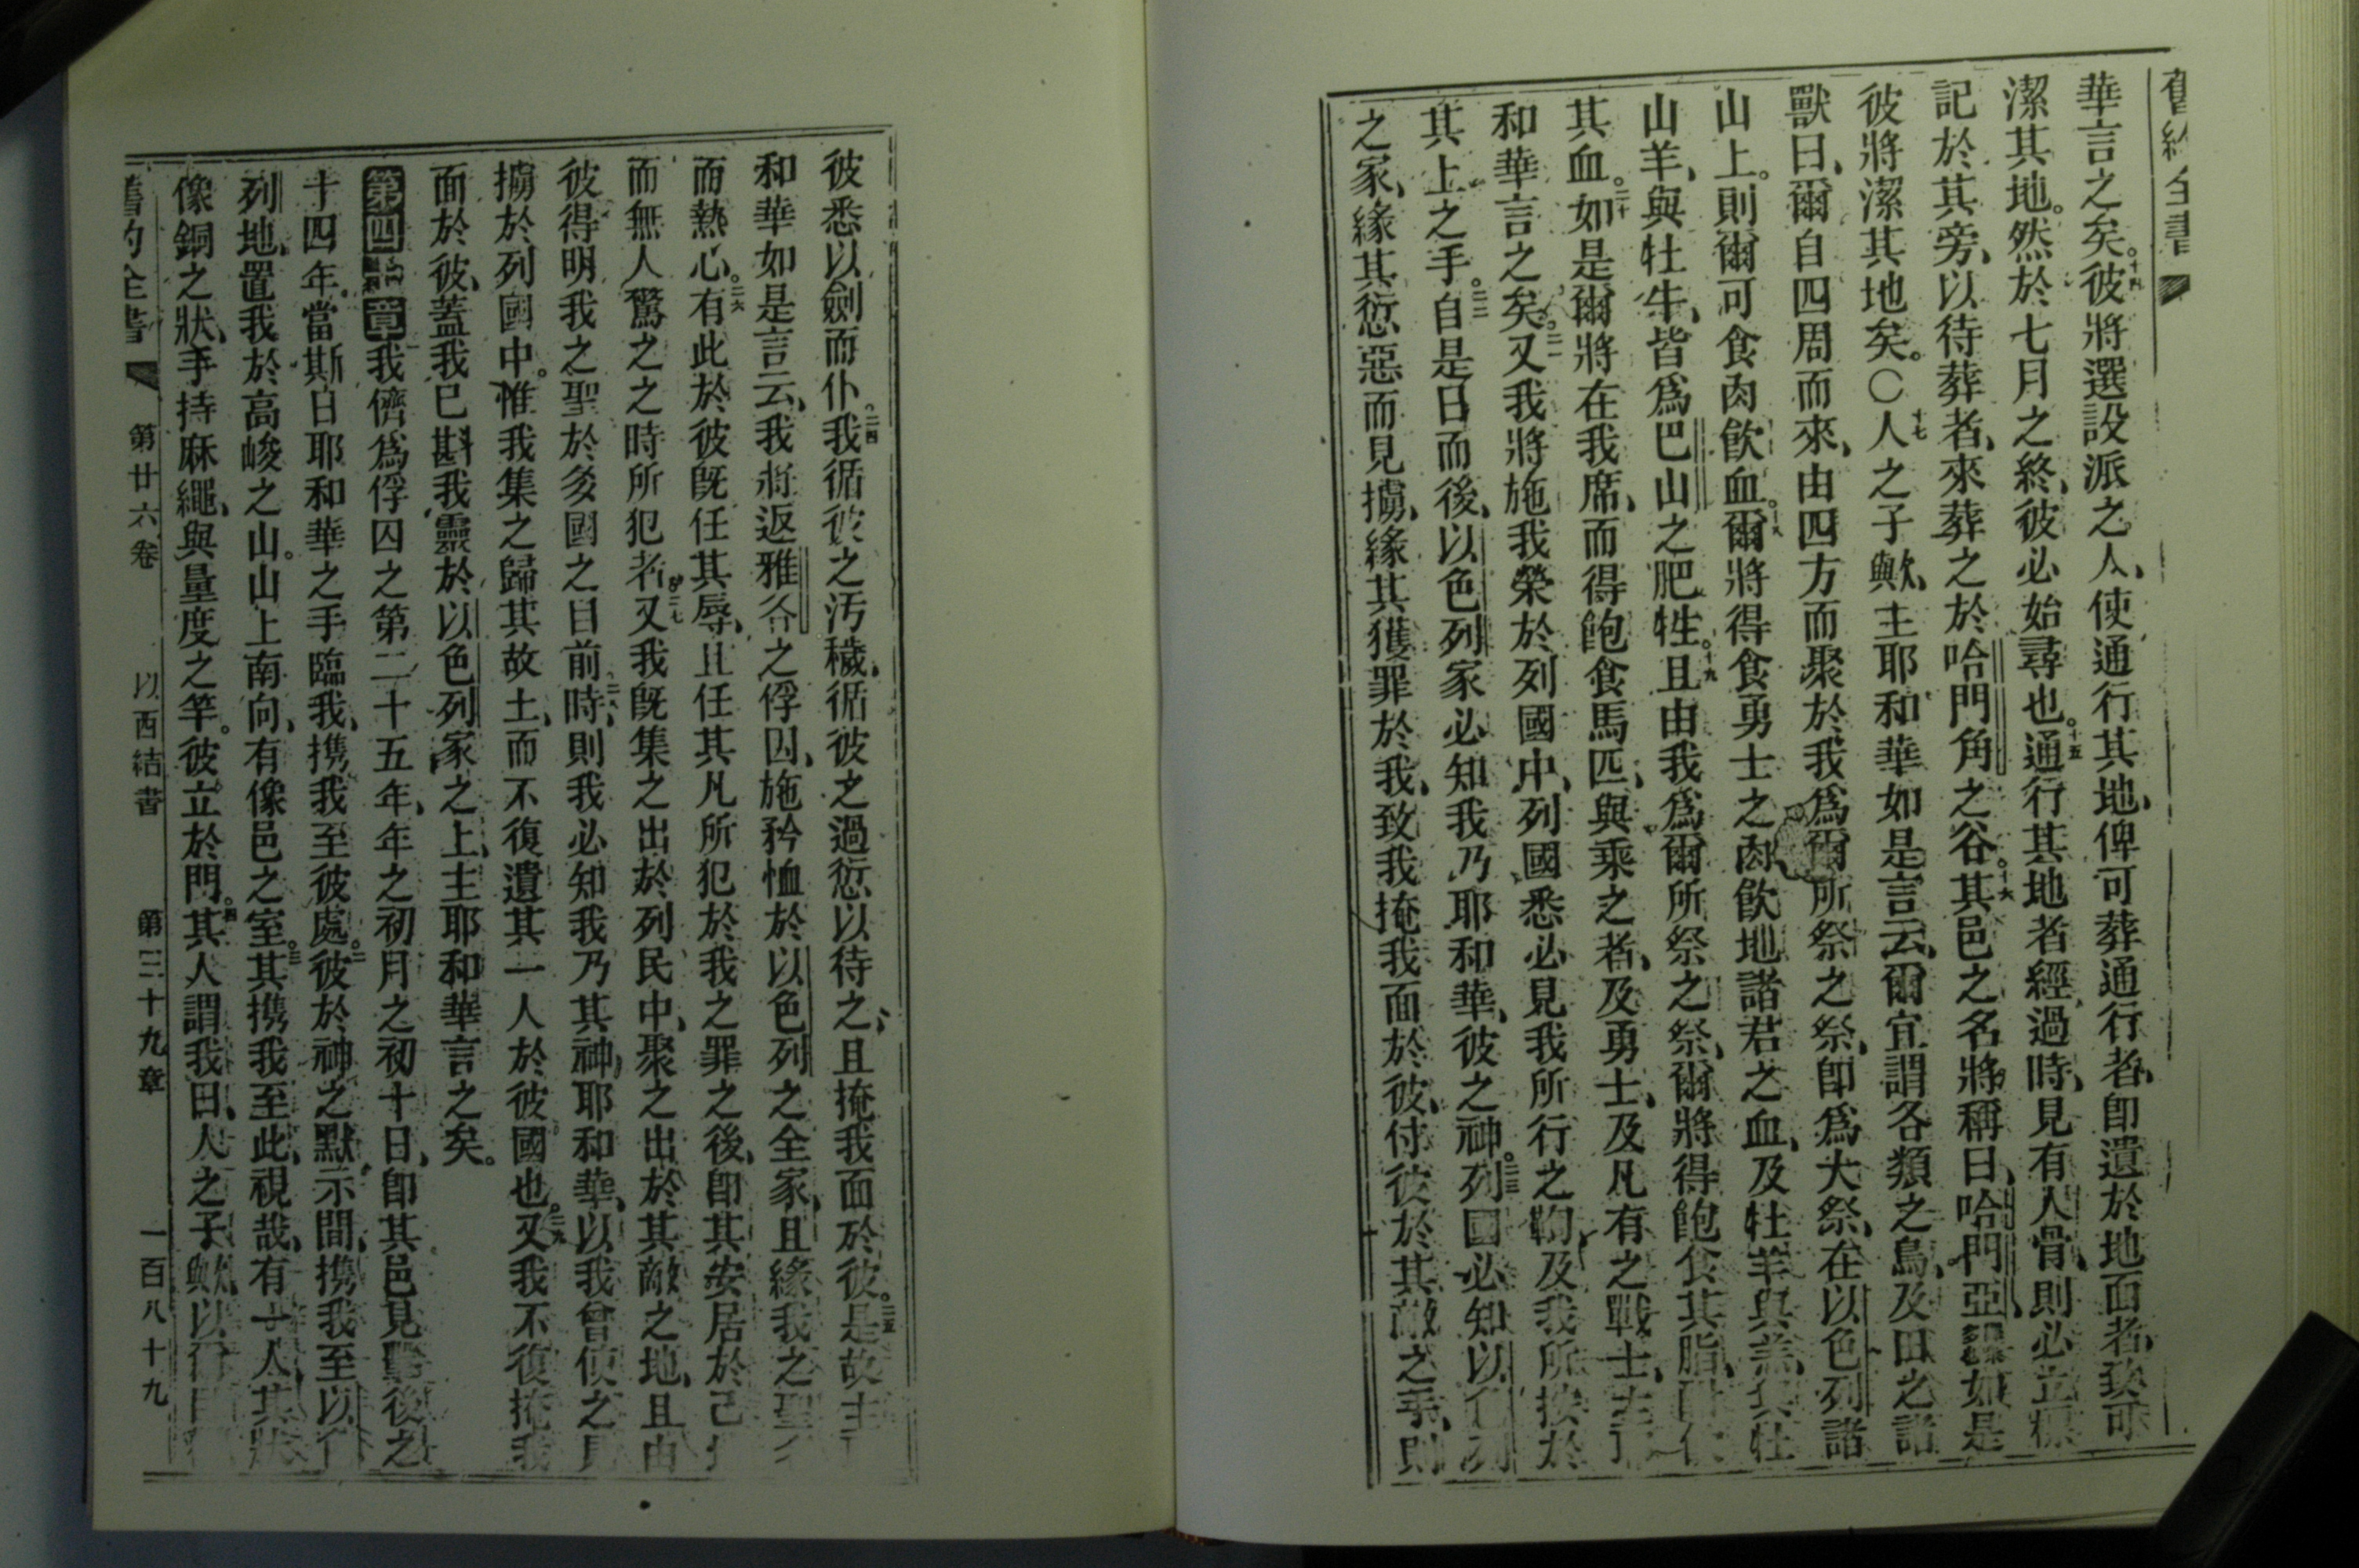 全書
華言之矣。十四彼將選設派之人、使通行其地、俾可葬通行者、卽遺於地面者、致可
潔其地。然於七月之終、彼必始尋也。十五通行其地者經過時、見有人骨、則必立標
記於其旁、以待葬者、來葬之於哈門角之谷。十六其邑之名、將稱曰、哈門亞、如是
彼將潔其地矣。〇十七人之子歟、主耶和華如是言云、爾宜謂各類之鳥、及田之諸
獸曰、爾自四周而來、由四方而聚於我爲爾所祭之祭、卽爲大祭、在以色列諸
山上。則爾可食肉飲血。十八爾將得食勇士之肉、飲地諸君之血、及牡羊與羔、與牡
山羊、與牡牛、皆爲巴山之肥牲。十九且由我爲爾所祭之祭、爾將得飽食其脂、
其血。二十如是爾將在我席、而得飽食馬匹、與乘之者、及勇士、及凡有之戰士、
和華言之矣。二一又我將施我榮於列國中、列國悉必見我所行之鞫、及我所按於
其上之手。二二自是日而後、以色列家必知我乃耶和華、彼之神。二三列國必知以色列
之家、緣其愆惡而見擄、緣其獲罪於我、致我掩我面於彼、付彼於其敵之手、則
彼悉以劍而仆。二四我循彼之汚穢、循彼之過愆以待之、且掩我面於彼。二五是故主
和華如是言云、我將返雅各之俘囚、施矜恤於以色列之全家、且緣我之聖名
而熱心。二六有此於彼旣任其辱、且任其凡所犯於我之罪之後、卽其安居於己
而無人驚之之時所犯者、二七又我旣集之出於列民中、聚之出於其敵之地、且由
彼得明我之聖於多國之目前時、二八則我必知我乃其神、耶和華、以我曾使之見
擄於列國中。惟我集之歸其故土、而不復遺其一人於彼國也。二九又我不復掩我
面於彼、蓋我已斟我靈於以色列家之上、主耶和華言之矣。
第四十章我儕爲俘囚之第二十五年、年之初月之初十日、卽其邑見擊後之
十四年。當斯日耶和華之手臨我、攜我至彼處。二彼於神之默示間、攜我至以色
列地、置我於高峻之山。山上南向、有像邑之室。三其攜我至此、視哉、有一人、其狀
像銅之狀、手持麻繩、與量度之竿。彼立於門。四其人謂我曰、人之子歟、以
舊約全書 第廿六卷 以西結書 第三十九章 一百八十九